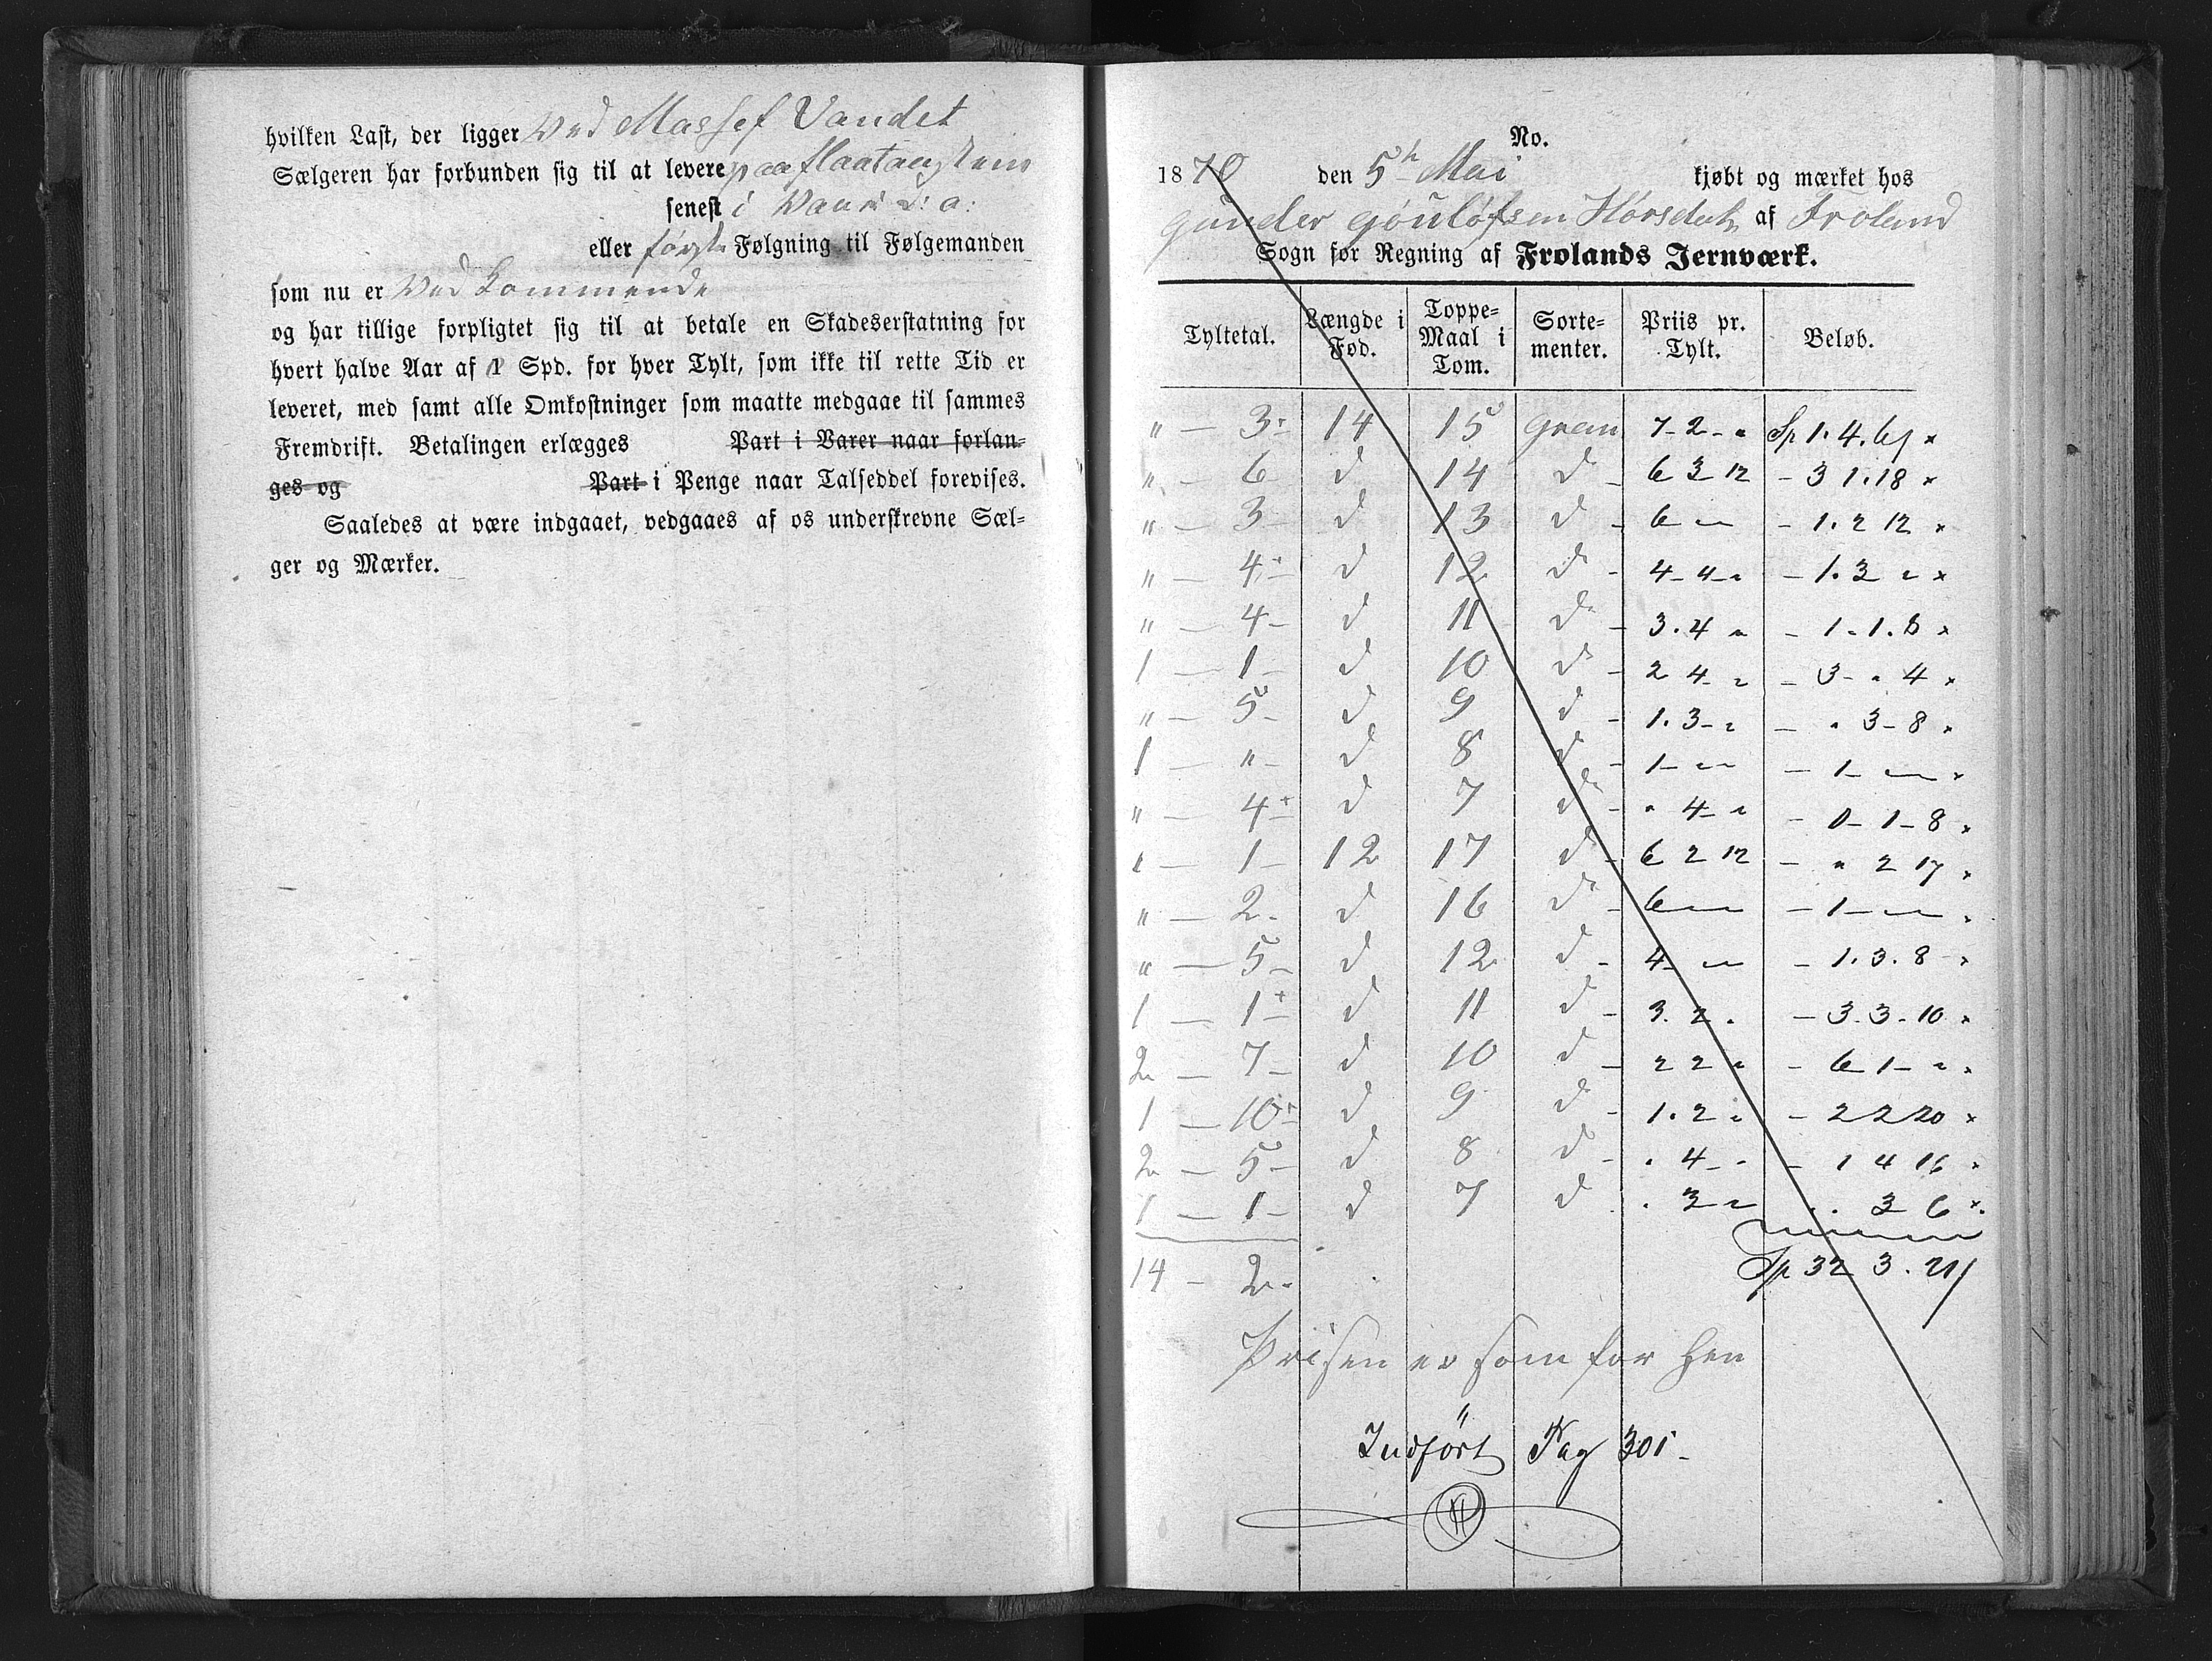 hvilken Last, der ligger Ved Massef Vandet
Sælgeren har forbunden sig til at levere paa flaatang
senest i Vaar d: a:
eller først Følgning til Følgemanden
som nu er Ved kommende
og har tillige forpligtet sig til at betale en Skadeserstatning for
hvert halve Aar af 1 Spd. for hver Tylt, som ikke til rette Tid er
leveret, med samt alle Omkostninger som maatte medgaae til sammes
Fremdrift. Betalingen erlægges Part i Varer naar forlan=
ges og Part i Penge naar Talseddel forevises.
Saaledes at være indgaaet, vedgaaes af os underskrevne Sæl=
ger og Mærker.
No.
1870 den 5h Mai kjøbt og mærket hos
gunder gøuløfsen af Froland
Sogn for Regning af Frolands Jernværk.
Tyltetal. Længde i Fod. Toppe=Maal i Tom. Sorte=menter. Priis pr. Tylt. Beløb.
" — 3- 14 15 gran 7-2-" Sp 1.4.6 x
" — 6 d 14 d - 6 3 12 - 3 1.18 x
" — 3 d 13 d - 6 " - 1.2 12 x
" — 4+ d 12 d - 4-4-" - 1.3 " x
" — 4- d 11 d - 3.4 " - 1.1.8 x
1 — 1- d 10 d - 2 4 " - 3-"4 x
" — 5- d 9 d - 1.3-" - " 3-8 x
1 — "- d 8 d - 1-" - 1 — x
" — 4+ d 7 d - " 4-" - 0-1-8 x
" — 1- 12 17 d - 6 2 12 - " 2 17 x
" — 2- d 16 d - 6 — - 1 — x
" — 5- d 12 d - 4- " - 1.3.8 x
1 — 1+ d 11 d - 3.2. - 3.3.10 x
2 — 7- d 10 d - 2 2 " - 6 1-" x
1 — 10+ d 9 d - 1.2 " - 2 2 20 x
2 — 5- d 8 d - " 4-" - 1 4 16 x
1 — 1- d 7 d " 3 " " 3 6 x
14 - 2- Sp 32 3.21
Prisen er som før hen
Indført Pag 301-